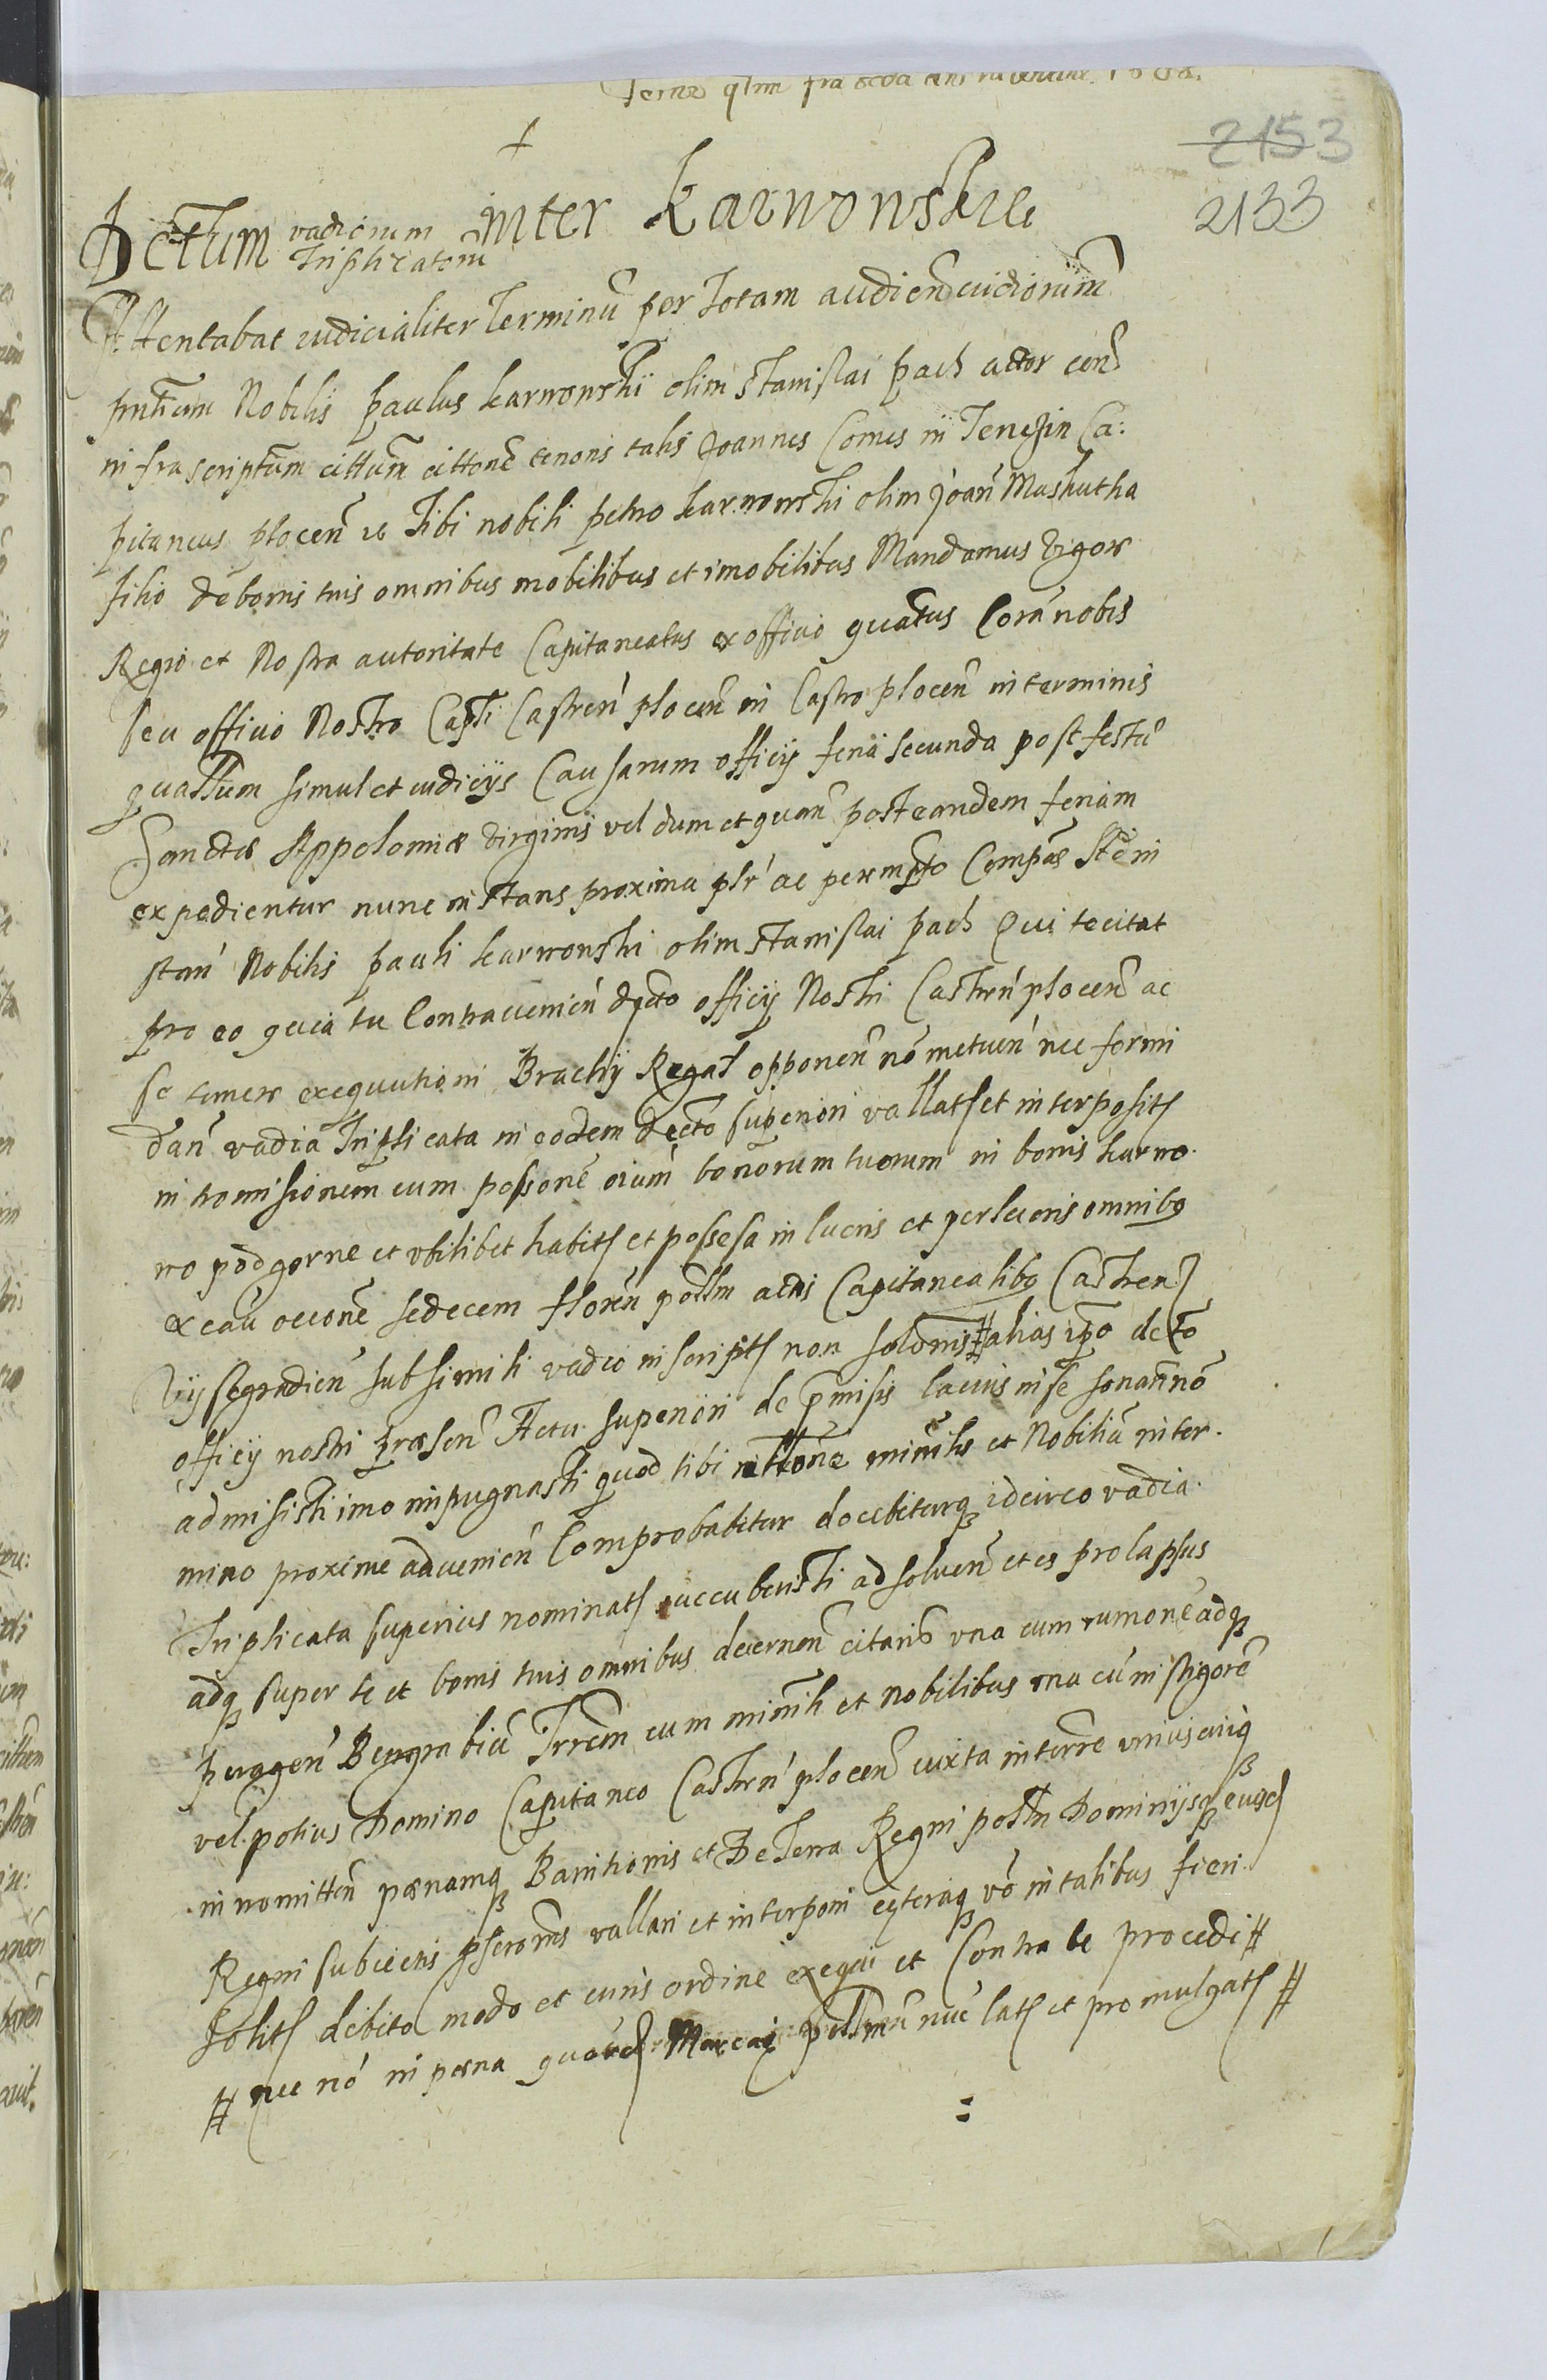 2153
2133
Dctum vadiorum inter Karwowskie
Triplicatorũ
Attentabat iudicialiter Terminũ per Totam audienc̃ iudiciorum̃
pntium Nobilis paulus karwowskÿ olim stanislai pach actor con̄
infrascriptum cittum cittone tenoris talis Joannes Comes in Tenczin Ca:
pitaneus plocen̄ ec Tibi nobili petro karwowski olim joan̄ Maskutha
filio de bonis tuis omnibus mobilibus et imobilibus Mandamus Vigore
Regio et Nostra autoritate Capitaneatus ex officio quatus Corã nobis
seu officio Nostro Capti Castren̄ plocen̄ in Castro plocen̄ in terminis
quattum simul et iudicijs Causarum officij feria secunda post festũ
Sanctæ Appoloniæ Virginis vel dum et quan̄ post eandem feriam
expedientur nunc instans proxima plr̄ ac permpto Compãs Ste in
stan̄ Nobilis pauli karwowski olim stanislai pach Qui te citat
pro eo quia tu Contravenien̄ dcto officij Nostri Castren̄ plocen̄ ac
se temere exequutioni Brachij Regal opponen̄ nõ metuen̄ nec formi
dan̄ vadia Triplicata in eodem decto superiori vallats et interposits
intromisionem cum possone oium bonorum tuorum in bonis karwo
wo podgorne et ubilibet habits et possesa in lucris et perlucris omnibq
ex cau occone sedecem floren̄ pollm actis Capitanealibq Castren
Vÿsegradien̄ sub simili vadio inscripts non solomis # alias ipo decto
officij nostri præsen̄ Actu superiori de pmisis lacius in se sonan̄ nõ
admisisti imo inpugnasti quod tibi in ttone minilis et Nobiliũ in ter
mino proxime advenien̄ Comprobabitur docebiturq idcirco vadia
Triplicata superius nominats succubuisti ad solven̄ et es prolapsus
adq super te et bonis tuis omnibus decernen̄ citaris una cum rumone adq
peragen̄ Burgrabiũ Trrem̄ cum minili et nobilibus una cũ instigore
vel potius Domino Capitaneo Castren̄ plocen̄ iuxta interre uniuscuiq
inromitten̄ pænamq Banitionis et De Terra Regni pollm Dominijsq eiusd
Regni subiectis pscronis vallari et interponi cęteraq võ in talibus fieri
Solits debito modo et iuris ordine exequi et Contra te procedi #
# nec nõ in pæna quor Marcar pollmen̄ nũc lats et promulgats #